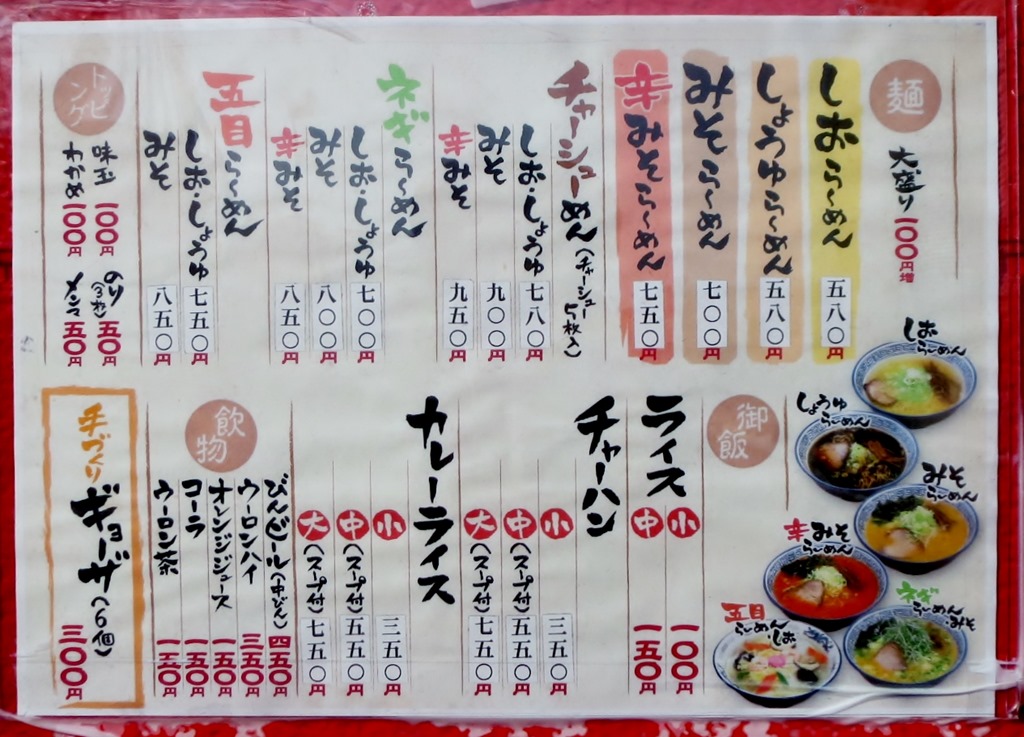 麺
大盛り 100円増
しおらーめん 五八〇円
しょうゆらーめん 五八〇円
みそらーめん 七〇〇円
辛みそらーめん 七五〇円
チャーシューめん（チャーシュー5枚入）
しお・しょうゆ 七八〇円
みそ 九〇〇円
辛みそ 九五〇円
ネギらーめん
しお・しょうゆ 七〇〇円
みそ 八〇〇円
辛みそ 八五〇円
五目らーめん
しお・しょうゆ 七五〇円
みそ 八五〇円
トッピング
味玉 一〇〇円
のり（3枚） 五〇円
わかめ 一〇〇円
メンマ 五〇円
しおらーめん
しょうゆらーめん
みそらーめん
辛みそらーめん
ネギらーめんみそ
五目らーめんしお
御飯
ライス
小 一〇〇円
中 一五〇円
チャーハン
小 三五〇円
中（スープ付） 五五〇円
大（スープ付） 七五〇円
カレーライス
小 三五〇円
中（スープ付） 五五〇円
大（スープ付） 七五〇円
飲物
びんビール（中びん） 四五〇円
ウーロンハイ 三五〇円
オレンジジュース 一五〇円
コーラ 一五〇円
ウーロン茶 一五〇円
手づくりギョーザ（6個） 三〇〇円